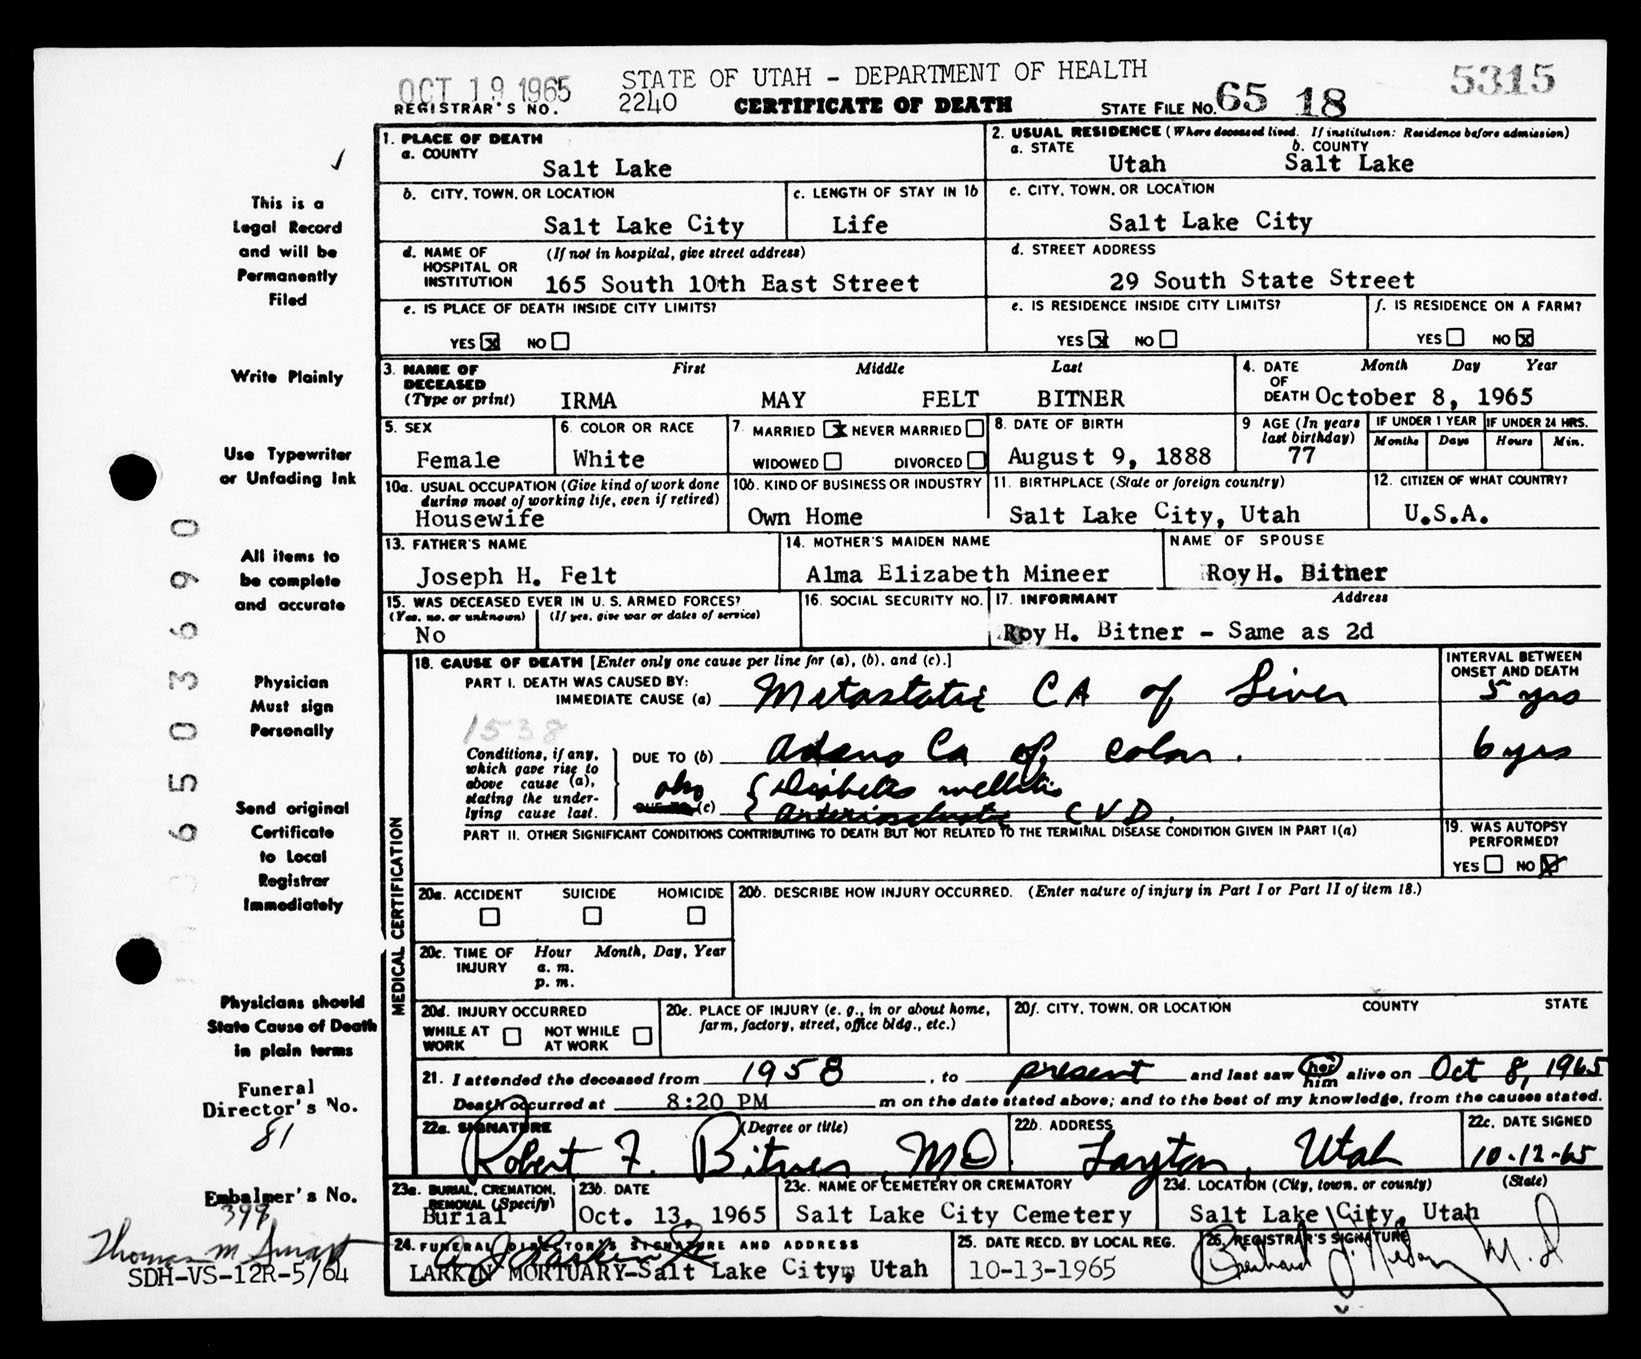 OCT 19 1965
STATE OF UTAH - DEPARTMENT OF HEALTH
5315
REGISTRAR'S NO. 2240 CERTIFICATE OF DEATH STATE FILE NO. 65 18
This is a
Legal Record
and will be
Permanently
Filed
Write Plainly
Use Typewriter
or Unfading Ink
All items to
be complete
and accurate
Physician
Must sign
Personally
Send original
Certificate
to Local
Registrar
Immediately
Physicians should
State Cause of Death
in plain terms
Funeral
Director's No.
81
Embalmer's No.
399
Thomas M
SDH-VS-12R-5/64
36503690
1. PLACE OF DEATH
a. COUNTY
Salt Lake
2. USUAL RESIDENCE (Where deceased lived. If institution: Residence before admission)
a. STATE b. COUNTY
Utah Salt Lake
b. CITY, TOWN, OR LOCATION
Salt Lake City
c. LENGTH OF STAY IN 1b
Life
c. CITY, TOWN, OR LOCATION
Salt Lake City
d. NAME OF HOSPITAL OR INSTITUTION (If not in hospital, give street address)
165 South 10th East Street
d. STREET ADDRESS
29 South State Street
e. IS PLACE OF DEATH INSIDE CITY LIMITS?
YES X NO
e. IS RESIDENCE INSIDE CITY LIMITS?
YES X NO
f. IS RESIDENCE ON A FARM?
YES NO X
3. NAME OF DECEASED (Type or print) First Middle Last
IRMA MAY FELT BITNER
4. DATE OF DEATH Month Day Year
October 8, 1965
5. SEX
Female
6. COLOR OR RACE
White
7. MARRIED X NEVER MARRIED
WIDOWED DIVORCED
8. DATE OF BIRTH
August 9, 1888
9 AGE (In years last birthday)
77
IF UNDER 1 YEAR IF UNDER 24 HRS.
Months Days Hours Min.
10a. USUAL OCCUPATION (Give kind of work done
during most of working life, even if retired)
Housewife
10b. KIND OF BUSINESS OR INDUSTRY
Own Home
11. BIRTHPLACE (State or foreign country)
Salt Lake City, Utah
12. CITIZEN OF WHAT COUNTRY?
U.S.A.
13. FATHER'S NAME
Joseph H. Felt
14. MOTHER'S MAIDEN NAME
Alma Elizabeth Mineer
NAME OF SPOUSE
Roy H. Bitner
15. WAS DECEASED EVER IN U. S. ARMED FORCES?
(Yes, no, or unknown) (If yes, give war or dates of service)
No
16. SOCIAL SECURITY NO.
17. INFORMANT Address
Roy H. Bitner - Same as 2d
MEDICAL CERTIFICATION
18. CAUSE OF DEATH [Enter only one cause per line for (a), (b), and (c).]
INTERVAL BETWEEN
ONSET AND DEATH
PART I. DEATH WAS CAUSED BY:
IMMEDIATE CAUSE (a) Metastatic CA of Liver 5 yrs
1538
Conditions, if any,
which gave rise to
above cause (a),
stating the under-
lying cause last.
DUE TO (b) Adeno Ca of colon. 6 yrs
also { Diabetes mellitis
DUE TO (c) { Arteriosclerotic CVD.
PART II. OTHER SIGNIFICANT CONDITIONS CONTRIBUTING TO DEATH BUT NOT RELATED TO THE TERMINAL DISEASE CONDITION GIVEN IN PART I(a)
19. WAS AUTOPSY
PERFORMED?
YES NO X
20a. ACCIDENT SUICIDE HOMICIDE
20b. DESCRIBE HOW INJURY OCCURRED. (Enter nature of injury in Part I or Part II of item 18.)
20c. TIME OF INJURY Hour Month, Day, Year
a. m.
p. m.
20d. INJURY OCCURRED
WHILE AT WORK NOT WHILE AT WORK
20e. PLACE OF INJURY (e. g., in or about home,
farm, factory, street, office bldg., etc.)
20f. CITY, TOWN, OR LOCATION COUNTY STATE
21. I attended the deceased from 1958, to present and last saw her him alive on Oct 8, 1965
Death occurred at 8:20 PM m on the date stated above; and to the best of my knowledge, from the causes stated.
22a. SIGNATURE (Degree or title)
Robert F. Bitner, MD.
22b. ADDRESS
Layton, Utah
22c. DATE SIGNED
10-12-65
23a. BURIAL, CREMATION,
REMOVAL (Specify)
Burial
23b. DATE
Oct. 13, 1965
23c. NAME OF CEMETERY OR CREMATORY
Salt Lake City Cemetery
23d. LOCATION (City, town, or county) (State)
Salt Lake City, Utah
24. FUNERAL DIRECTOR'S SIGNATURE AND ADDRESS
LARKIN MORTUARY-Salt Lake City, Utah
25. DATE RECD. BY LOCAL REG.
10-13-1965
26. REGISTRAR'S SIGNATURE
M.D